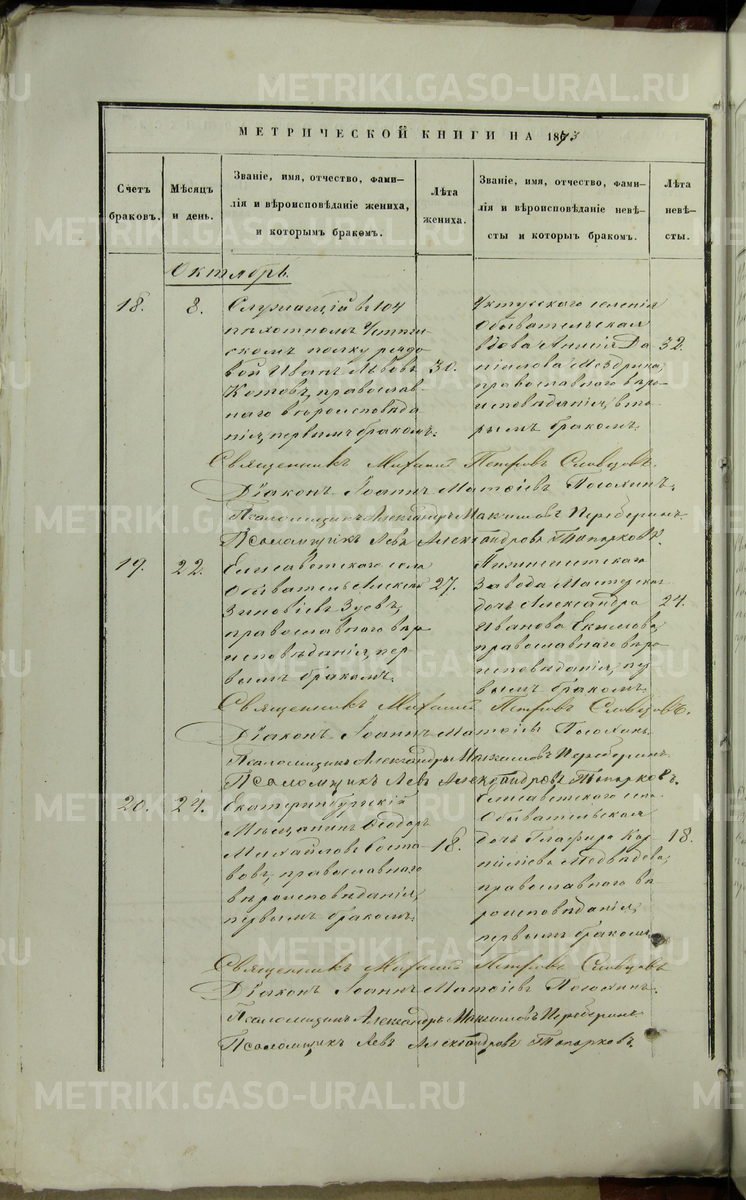 МЕТРИЧЕСКОЙ КНИГИ НА 1873
Счетъ браковъ.
Мѣсяцъ и день.
Званіе, имя, отчество, фами-
лія и вѣроисповѣданіе жениха,
и которымъ бракомъ.
Лѣта жениха.
Званіе, имя, отчество, фами-
лія и вѣроисповѣданіе невѣ-
сты и которы бракомъ.
Лѣта невѣ-
сты.
Октябрь
18.
8.
Служащій въ 104
пѣхотномъ
скомъ полку рядо
вой Иванъ Львовъ
Котовъ, православ
наго вѣроисповѣда
нія, первымъ бракомъ.
30.
Уктусскаго селенія
Обывательская
вдова Анна Да
ніилова
православнаго вѣро
исповѣданія, вто
рымъ бракомъ.
32.
Священникъ Михаилъ Петровъ Словцовъ.
Діаконъ Іоаннъ Матѳіевъ
Псаломщикъ Александръ Максимовъ Переберинъ.
Псаломщикъ Левъ Александровъ Топорковъ.
19.
22.
Елисаветскаго села
Обыватель Алексѣй
Зиновіевъ Зуевъ,
православнаго вѣро
исповѣданія, пер
вымъ бракомъ.
27.
Завода Мастерская
дочь Александра
Иванова Екимова,
православнаго вѣро
исповѣданія, пер
вымъ бракомъ.
24.
Священникъ Михаилъ Петровъ Словцовъ.
Діаконъ Іоаннъ Матѳіевъ
Псаломщикъ Александръ Максимовъ Переберинъ.
Псаломщикъ Левъ Александровъ Топорковъ.
20.
24.
Екатеринбургскій
Мѣщанинъ Ѳеодоръ
Михайловъ Соста
вовъ, православнаго
вѣроисповѣданія,
первымъ бракомъ.
18.
Елисаветскаго села
Обывательская
дочь Глафира Кор
ниліева Медвѣдева,
православнаго вѣ
роисповѣданія,
первымъ бракомъ.
18.
Священникъ Михаилъ Петровъ Словцовъ
Діаконъ Іоаннъ Матѳіевъ
Псаломщикъ Александръ Максимовъ Переберинъ
Псаломщикъ Левъ Александровъ Топорковъ.
METRIKI.GASO-URAL.RU